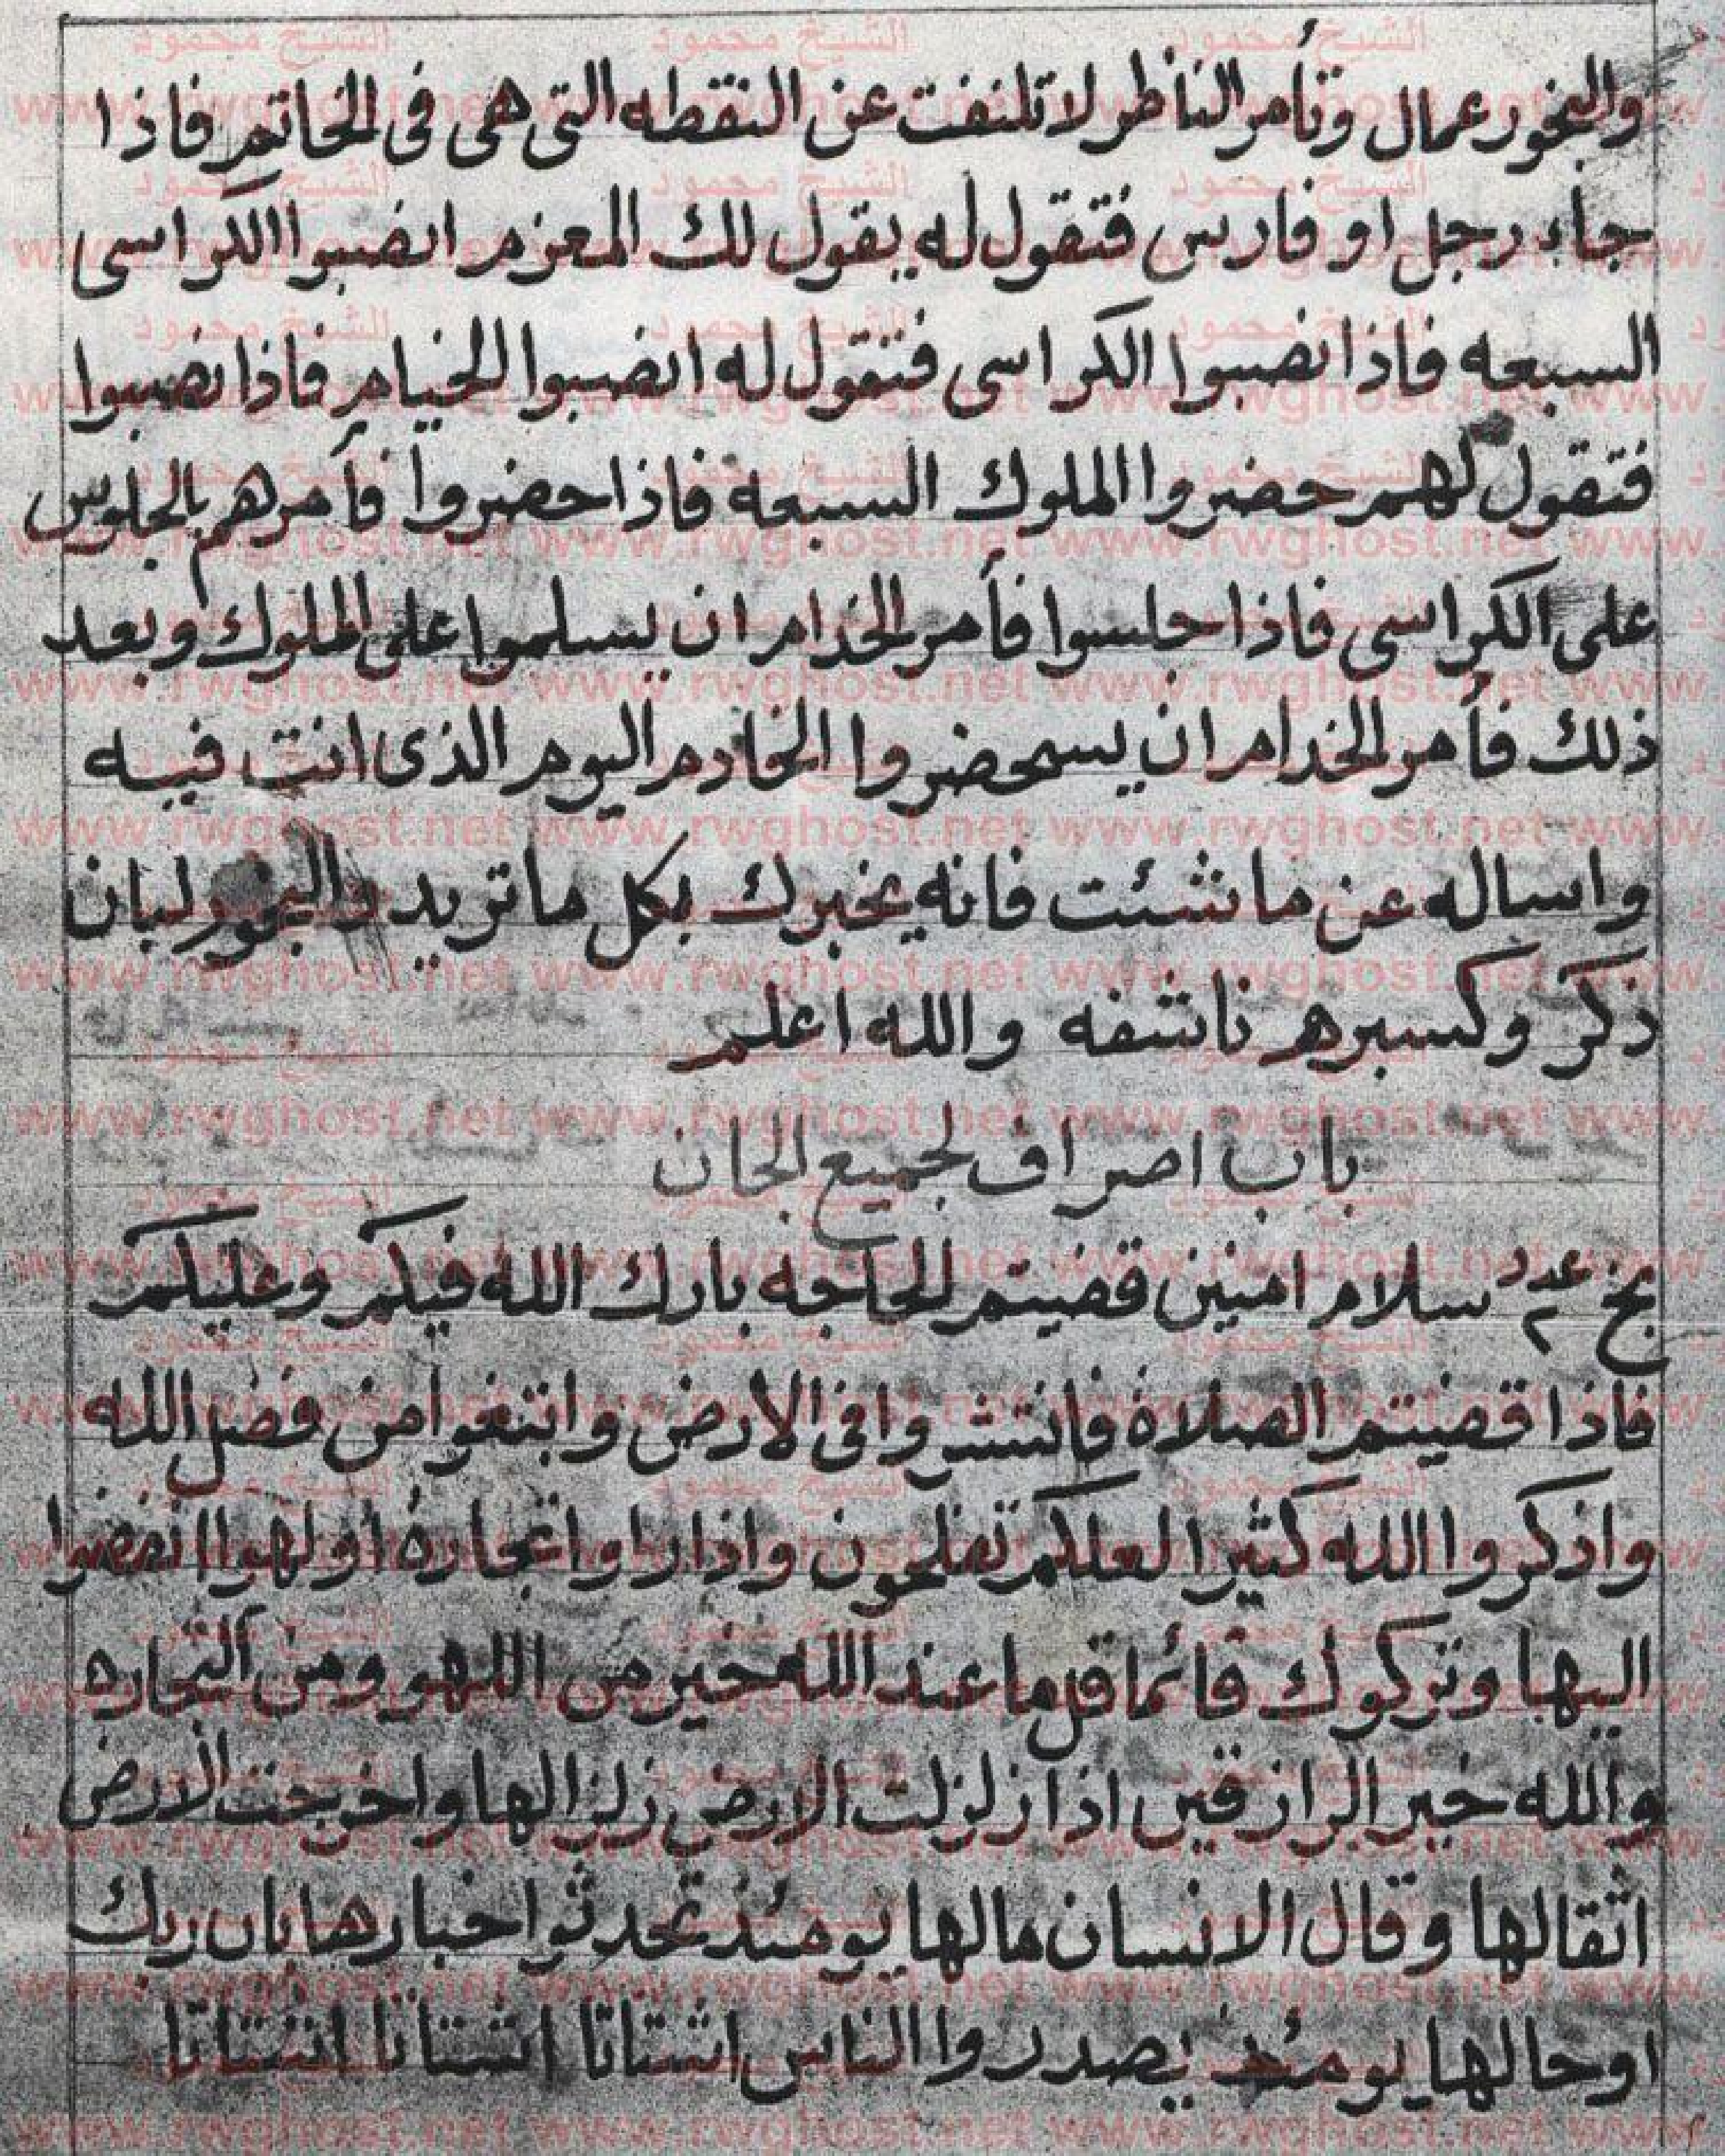 والبخور عمال وتأمر الناظر لا تلتفت عن النقطه التى هى فى الخاتم فاذا
جاء رجل او فارس فتقول له يقول لك المعزم انصبوا الكراسى
السبعه فاذا نصبوا الكراسى فتقول له انصبوا الخيام فاذا نصبوا
فتقول لهم حضروا الملوك السبعه فاذا حضروا فأمرهم بالجلوس
على الكراسى فاذا جلسوا فأمر الخدام ان يسلموا على الملوك وبعد
ذلك فأمر الخدام ان يسحضروا الخادم اليوم الذى انت فيه
واساله عن ما شئت فانه يخبرك بكل ما تريد والبخور لبان
ذكر وكسبره ناشفه والله اعلم
باب اصراف لجميع الجان
بخ عدد ٢ سلام امنين قضيتم الحاجه بارك الله فيكم وعليكم
فاذا قضيتم الصلاة فانتشروا فى الارض وابتغوا من فضل الله
واذكروا الله كثيرا لعلكم تفلحون واذا راوا تجارة او لهوا انفضوا
اليها وتركوك قائما قل ما عند الله خير من اللهو ومن التجاره
والله خير الرازقين اذا زلزلت الارض زلزالها واخرجت الارض
اثقالها وقال الانسان مالها يومئذ تحدثوا اخبارها بان ربك
اوحالها يومئذ يصدروا الناس اشتاتا اشتاتا اشتاتا